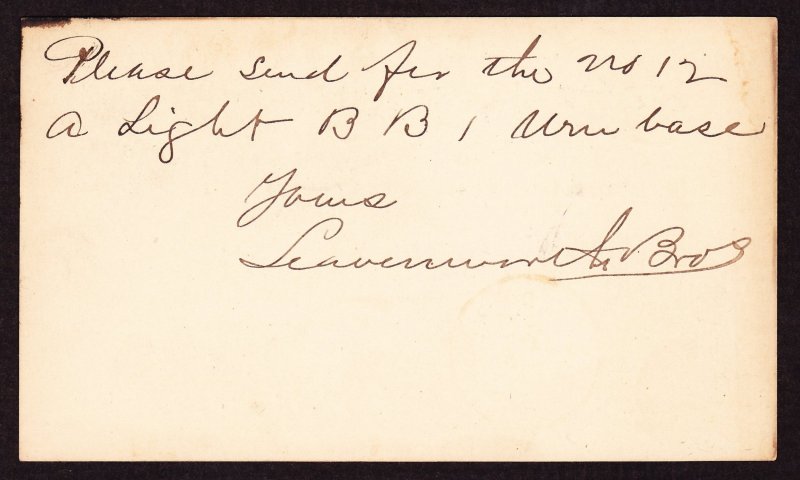 Please send for the No 12
a Light B B 1 Urn base
Yours
Leavenworth Bros